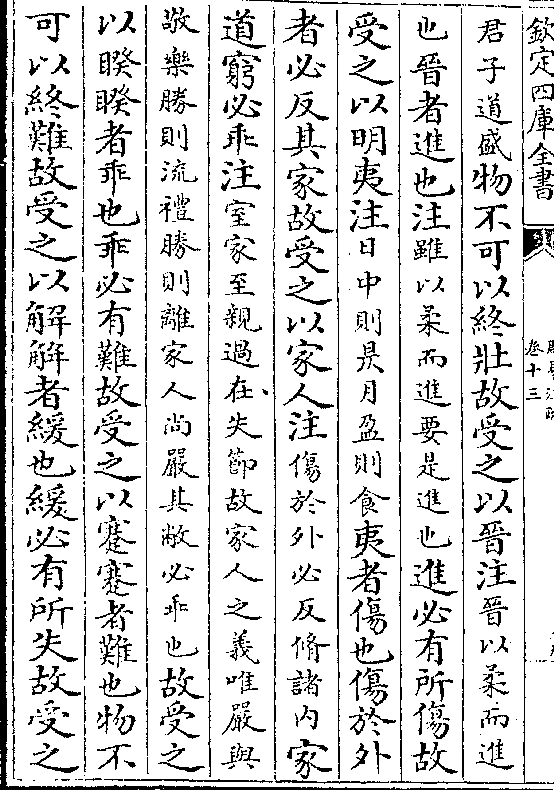 欽定四庫全書
卷十三
君子道盛物不可以終壯故受之以晉注晉以柔而進
也晉者進也注雖以柔而進要是進也進必有所傷故
受之以明夷注日中則昃月盈則食夷者傷也傷於外
者必反其家故受之以家人注傷於外必反脩諸内家
道窮必乖注室家至親過在失節故家人之義唯嚴與
敬樂勝則流禮勝則離家人尚嚴其敝必乖也故受之
以睽睽者乖也乖必有難故受之以蹇蹇者難也物不
可以終難故受之以解解者緩也緩必有所失故受之